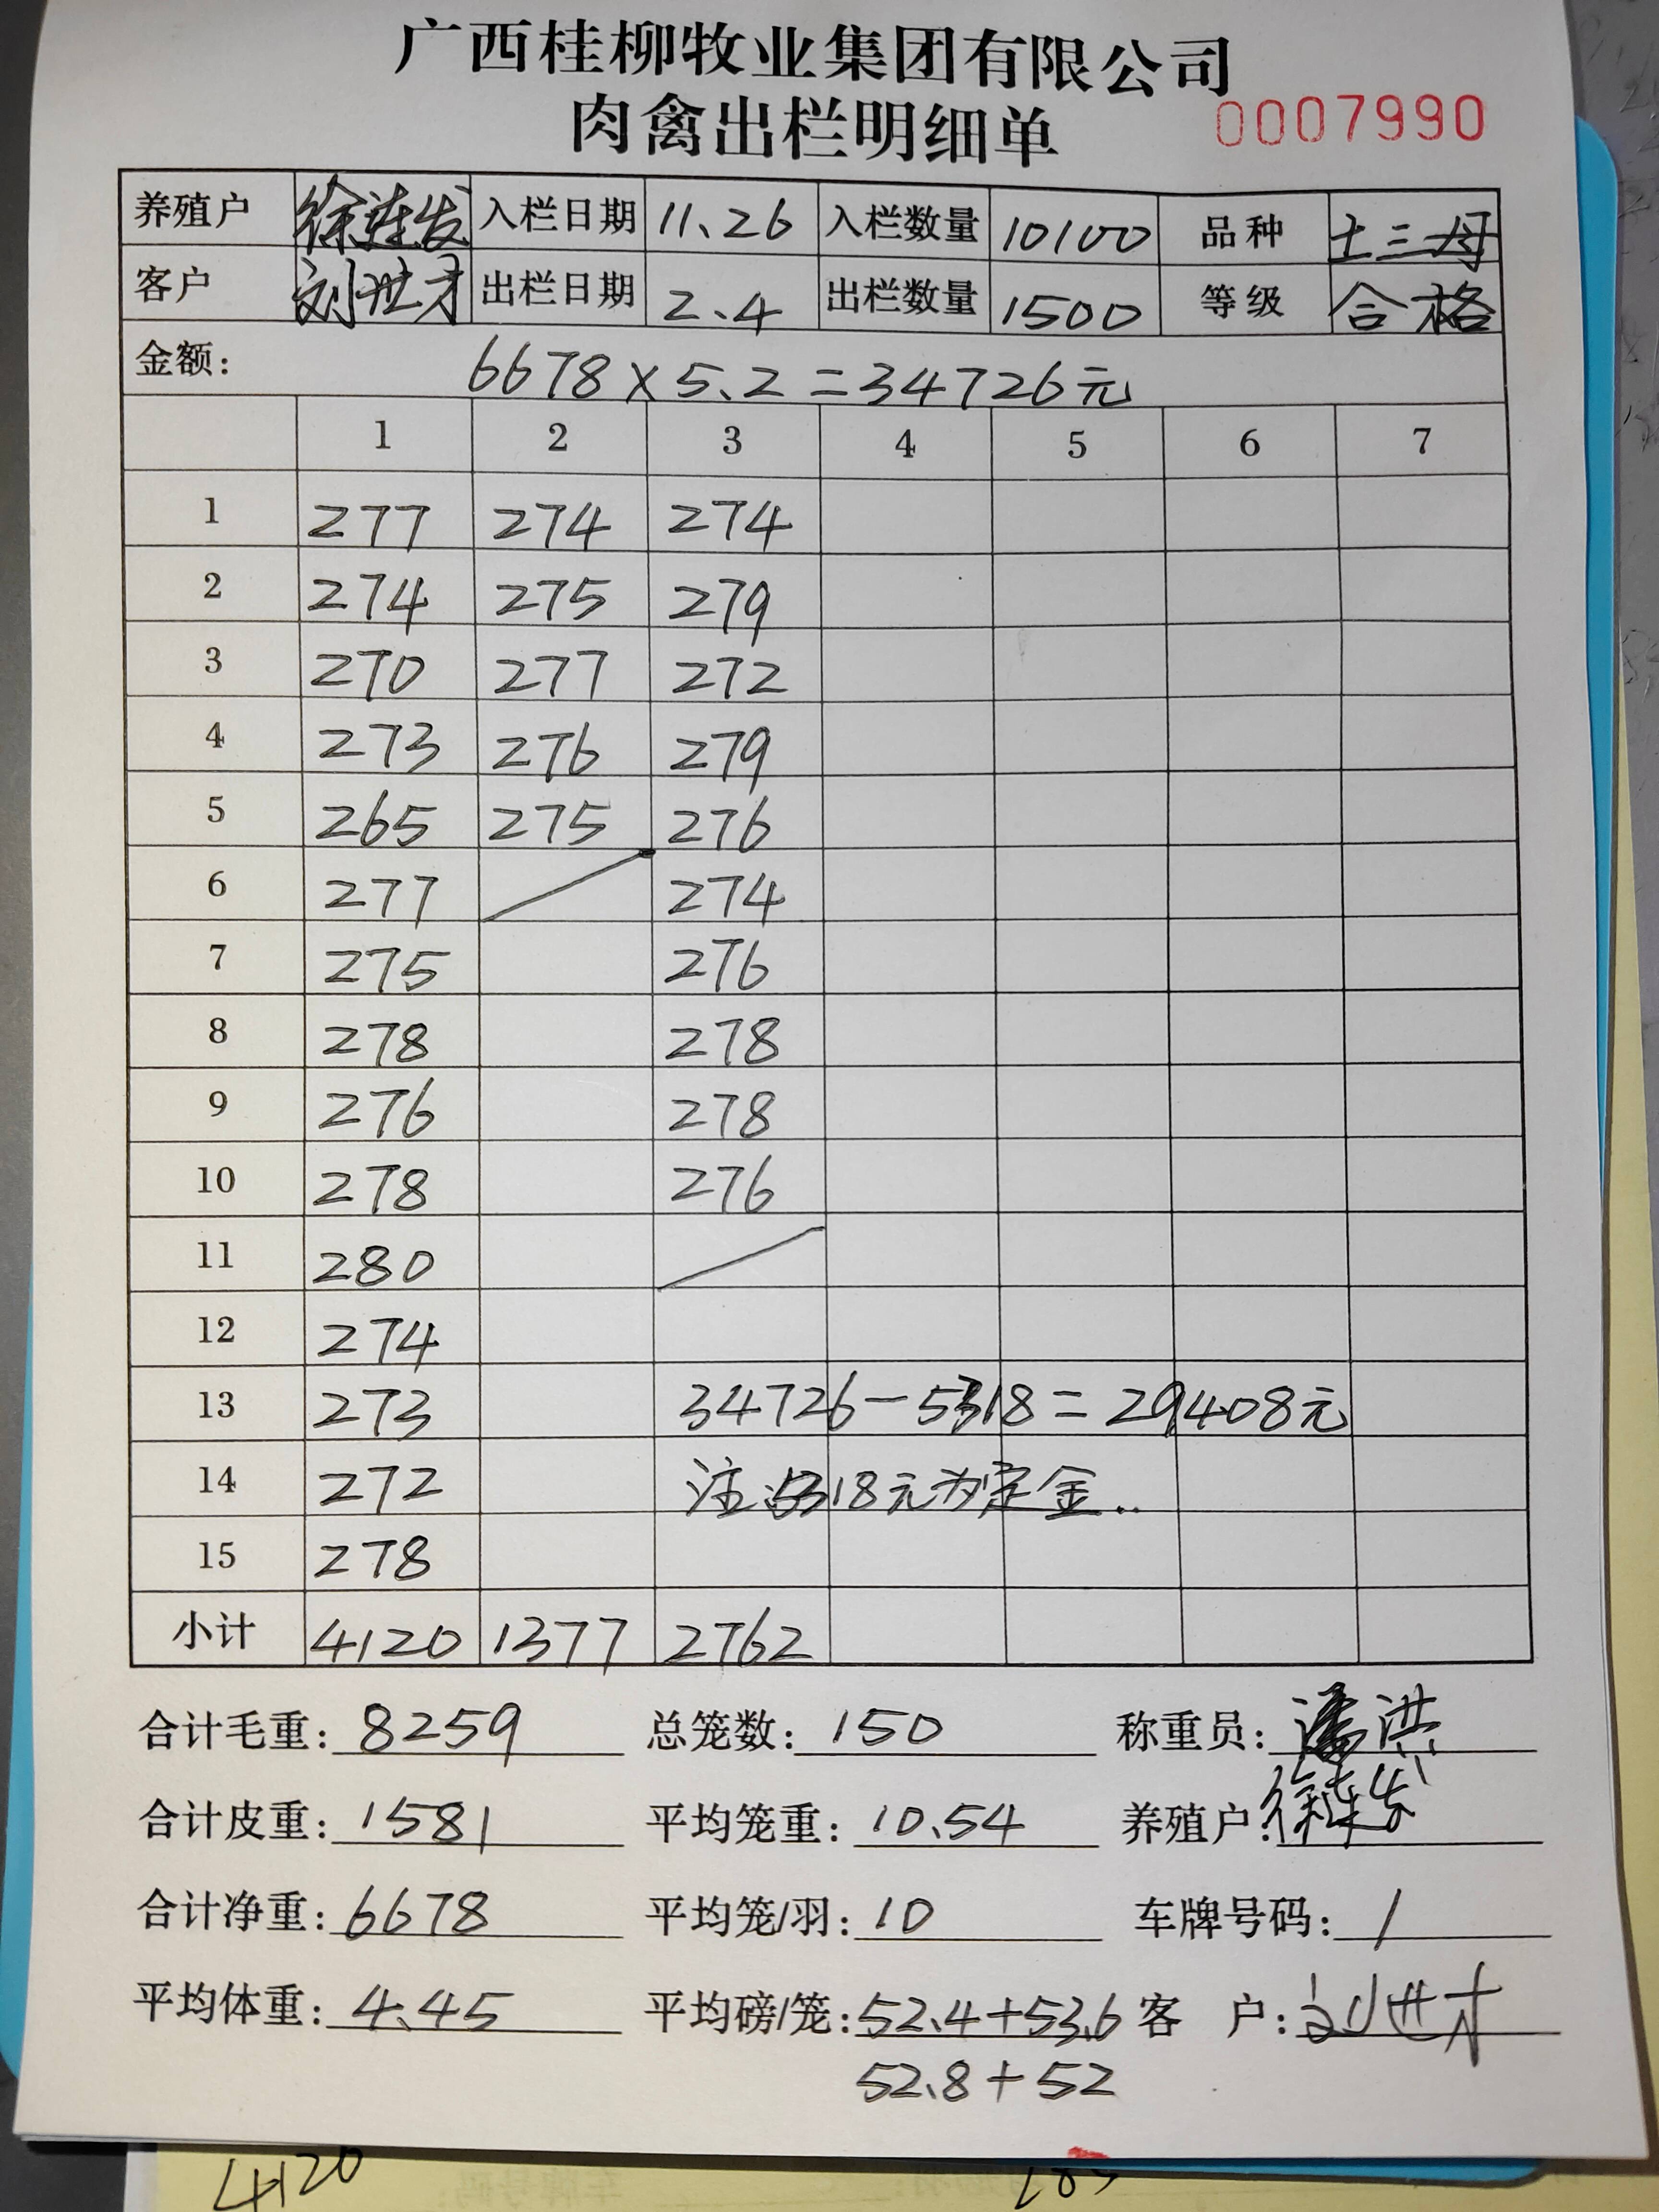 广西桂柳牧业集团有限公司
肉禽出栏明细单 0007990
养殖户 徐连发 入栏日期 11、26 入栏数量 10100 品种 土三号
客户 刘世才 出栏日期 2、4 出栏数量 1500 等级 合格
金额: 6678×5、2=34726元
1 2 3 4 5 6 7
1 277 274 274
2 274 275 279
3 270 277 272
4 273 276 279
5 265 275 276
6 277 274
7 275 276
8 278 278
9 276 278
10 278 276
11 280
12 274
13 273 34726-5318=29408元
14 272 注:5318元为定金..
15 278
小计 4120 1377 2762
合计毛重: 8259 总笼数: 150 称重员: 潘洪
合计皮重: 1581 平均笼重: 10、54 养殖户: 徐连发
合计净重: 6678 平均笼/羽: 10 车牌号码: /
平均体重: 4、45 平均磅/笼: 52、4+53、6 客 户: 刘世才
52、8+52
4120